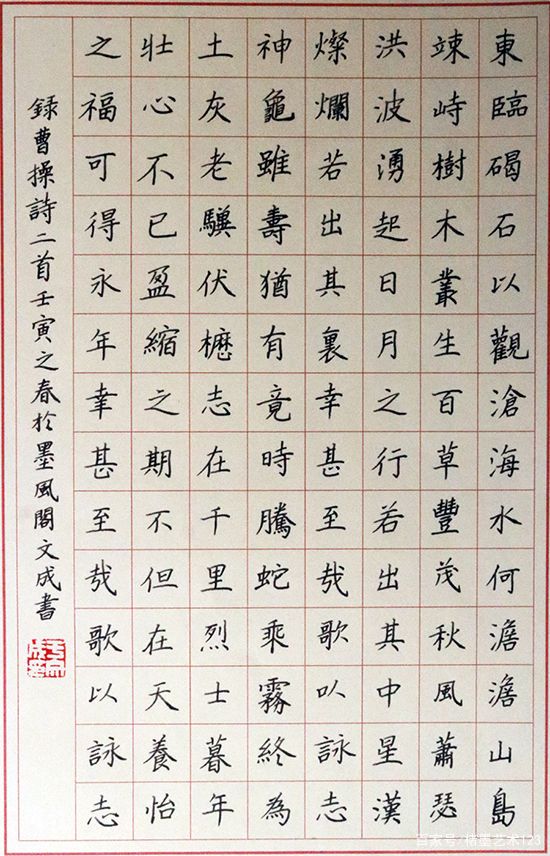 東臨碣石以觀滄海水何澹澹山島
竦峙樹木叢生百草豐茂秋風蕭瑟
洪波湧起日月之行若出其中星漢
燦爛若出其裏幸甚至哉歌以詠志
神龜雖壽猶有竟時騰蛇乘霧終為
土灰老驥伏櫪志在千里烈士暮年
壯心不已盈縮之期不但在天養怡
之福可得永年幸甚至哉歌以詠志
録曹操詩二首壬寅之春於墨風閣文成書
百家号/楷墨艺术123